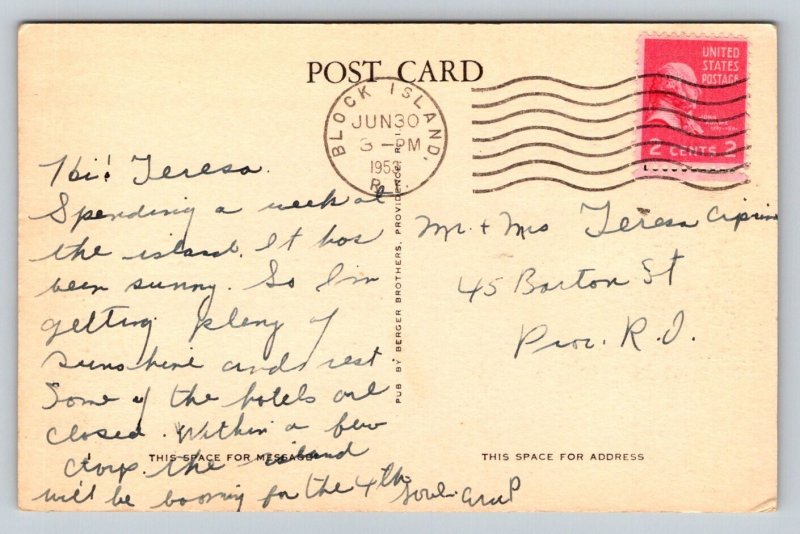 POST CARD
BLOCK ISLAND,
JUN 30
3 - PM
1953
R.I.
UNITED
STATES
POSTAGE
2 CENTS 2
Hi! Teresa.
Spending a week at
the island. It has
been sunny. So I'm
getting pleny of
sunshine and rest
Some of the hotels are
closed. Within a few
days the island
will be booming for the 4th
Mr. + Mrs Teresa
45 Barton St
Prov. R.I.
PUB BY BERGER BROTHERS, PROVIDENCE, R. I.
THIS SPACE FOR MESSAGE
THIS SPACE FOR ADDRESS